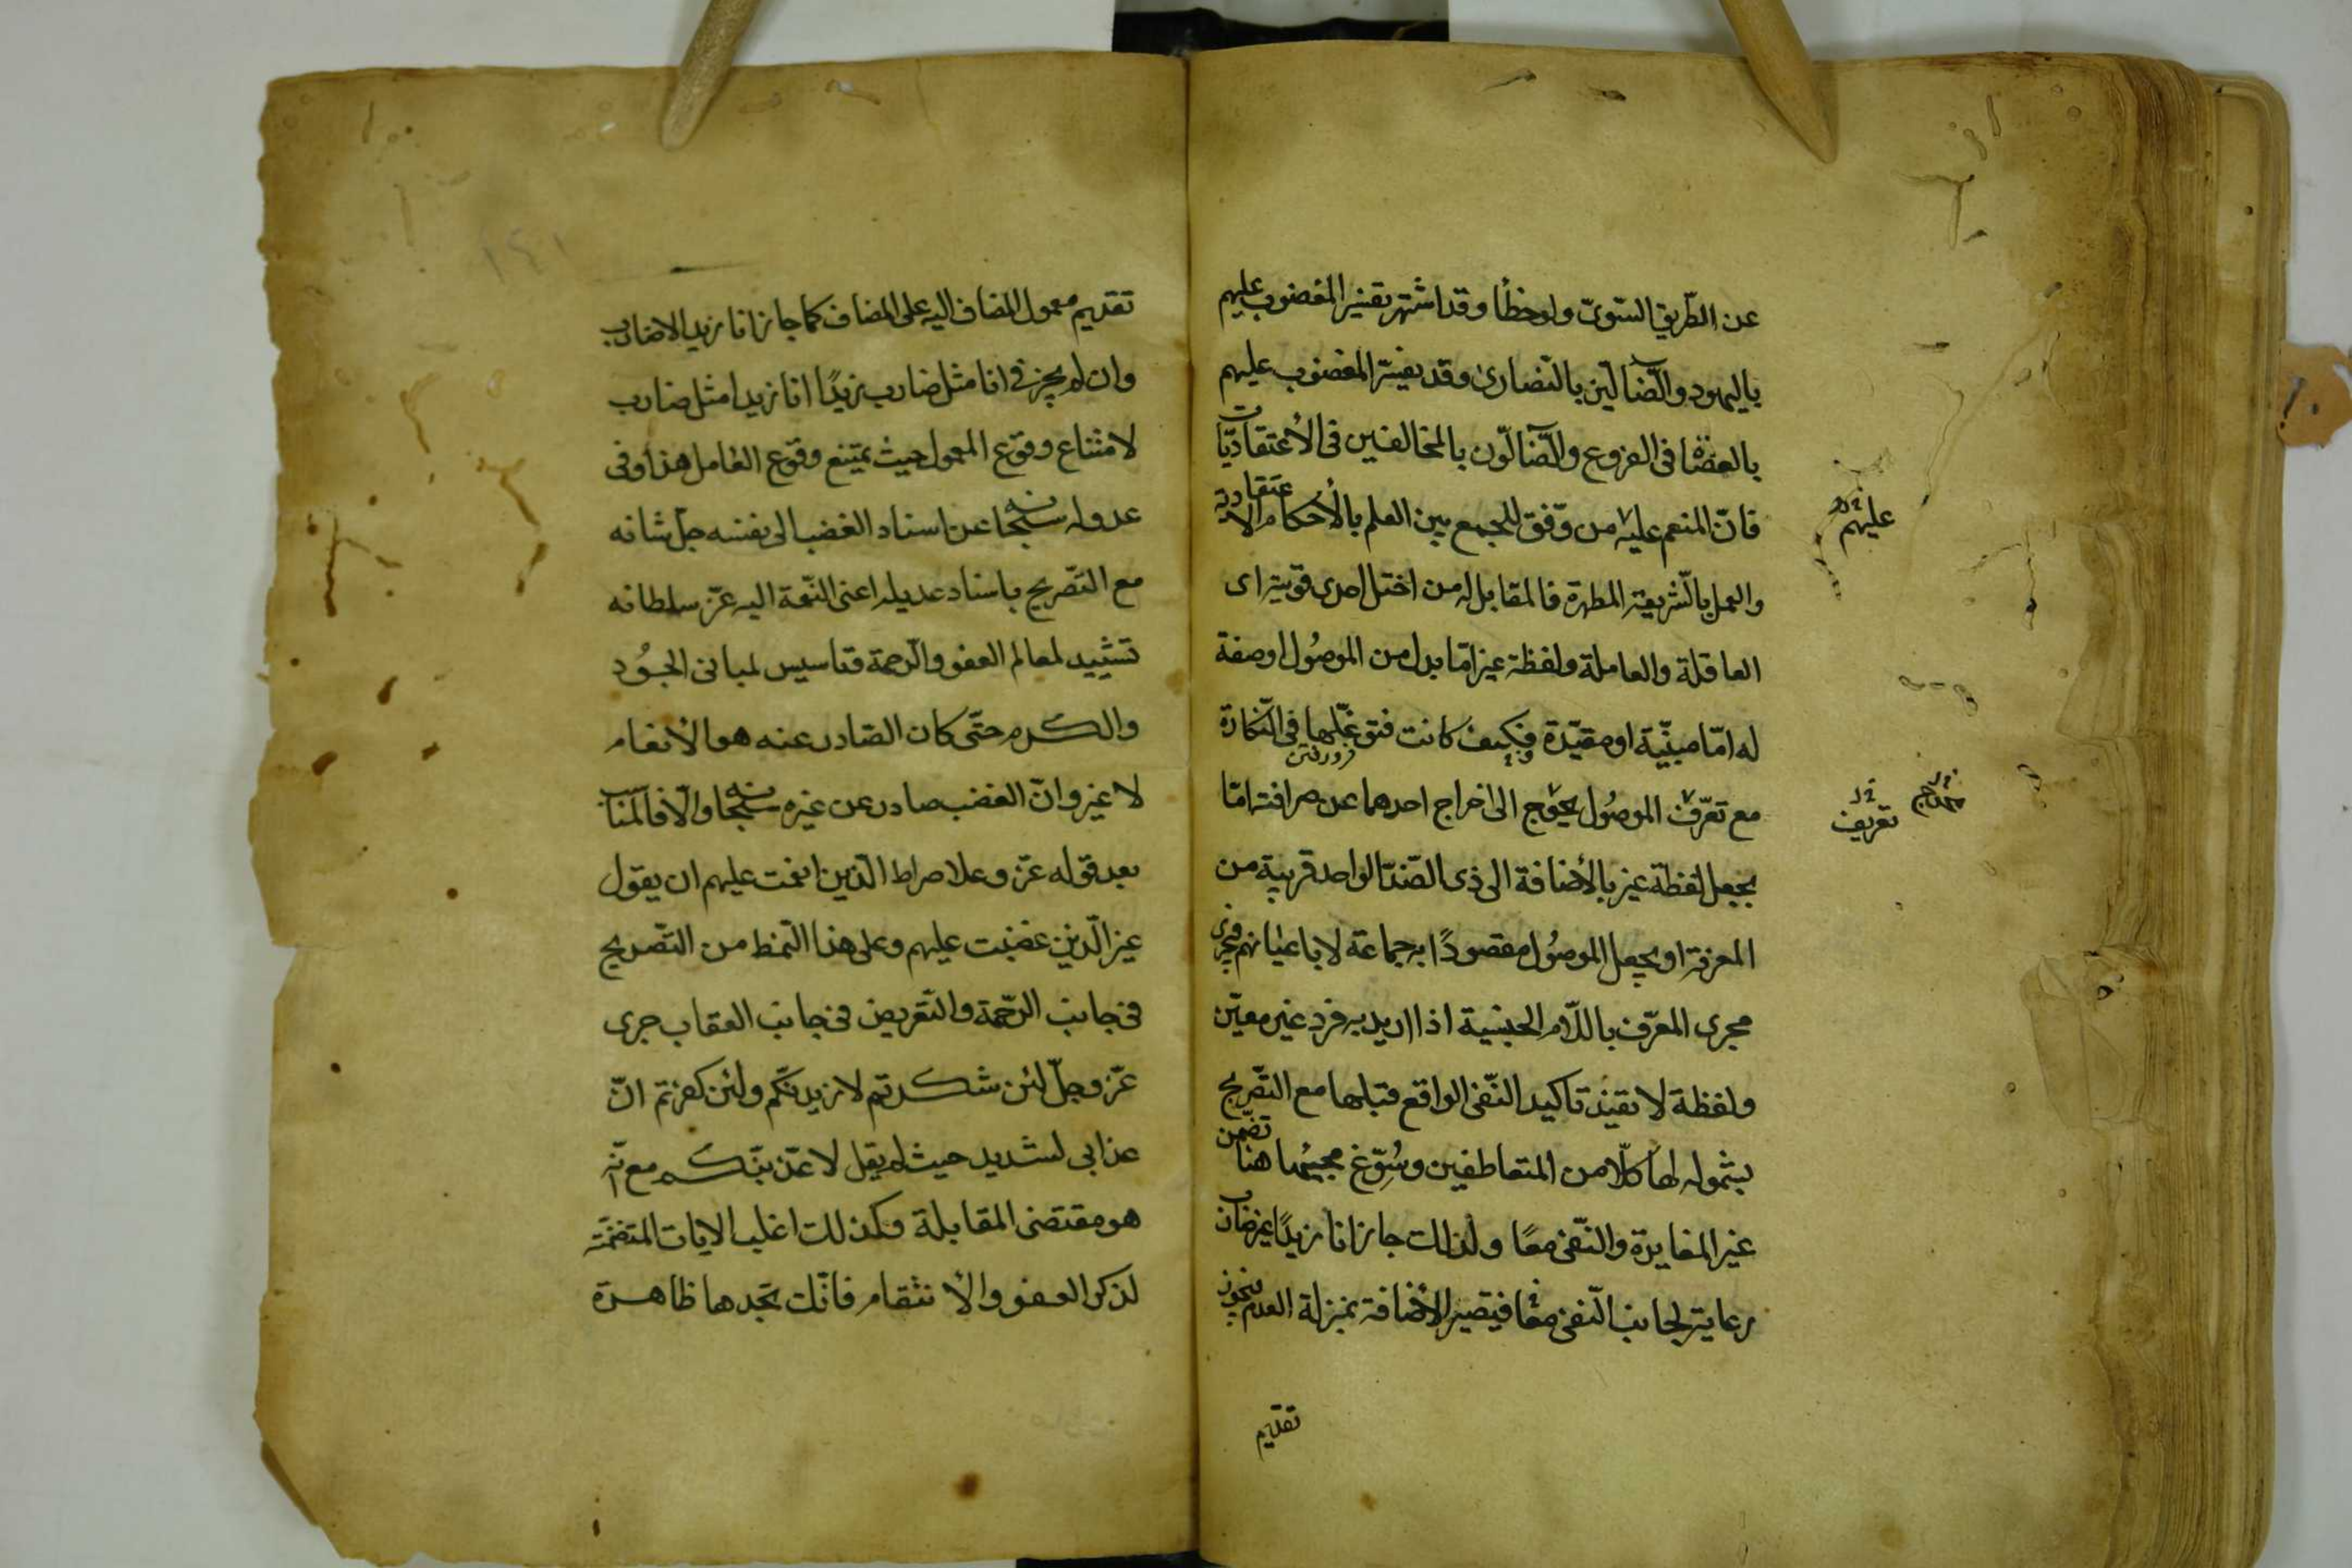 عن الطّريق السّويّ ولو خطأ وقد اشتهر تفسير المغضوب عليهم
باليهود والضّالّين بالنّصارى وقد يفسّر المغضوب عليهم
بالعصاة فى الفروع والضّالّون بالمخالفين فى الأعتقاديّات
فانّ المنعم عليه من وفّق للجمع بين العلم بالأحكام الاعتقادية
والعمل بالشّريعة المطهرة فالمقابل له من اختل احدى قوّتيه اى
العاقلة والعاملة ولفظة غير امّا بدل من الموصُول او صفة
له امّا مبنيّة او مقيّدة وكيف كانت فتوغّلها فى النّكارة
فرو رفتن
مع تعرّف الموصُول يحوج الى اخراج احدهما عن صرافته امّا
بجعل لفظة غير بالأضافة الى ذى الضّدّ الواحد قريبة من
المعرفة او بجعل الموصُول مقصودًا به جماعة لا باعيانهم فيجرى
مجرى المعرّف باللّام الجنسية اذا اريد به فرد غير معيّن
ولفظة لا تفيد تاكيد النّفى الواقع قبلها مع التصّريح
بشموله لها كلّا من المتعاطفين وسُوّغ مجيئها هنا تضمّن
غير المغايرة والنّفى معًا ولذلك جاز انا زيدًا غير ضارب
رعاية لجانب النّفى معًا فيتصير الأضافة بمنزلة العدم فيجوز
تقديم
عليهم
تعريف
تقديم معمول المضاف اليه على المضاف كما جاز انا زيدا لا ضارب
وان لم يجز فى انا مثل ضارب زيدًا انا زيدا مثل ضارب
لامتناع وقوع المعمول حيث يمتنع وقوع العامل هذا وفى
عدوله سبحانه عن اسناد الغضب الى نفسه جلّ شانه
مع التصّريح باسناد عديله اعنى النّعمة اليه عزّ سلطانه
تشييد لمعالم العفو والرّحمة وتاسيس لمبانى الجُود
والكرم حتّى كان الصّادر عنه هو الأنعام
لا غير وانّ الغضب صادر عن غيره سبحانه والّا فالمناسب
بعد قوله عزّ وعلا صراط الّذين انعمت عليهم ان يقول
غير الّذين غضبت عليهم وعلى هذا النّمط من التصّريح
فى جانب الرّحمة والتّعريض فى جانب العقاب جرى
عزّ وجلّ لئن شكرتم لازيدنّكم ولئن كفرتم انّ
عذابى لشديد حيث لم يقل لاعذّبنّكم مع انّه
هو مقتضى المقابلة وكذلك اغلب الايات المتضمّنة
لذكر العفو والأنتقام فانّك تجدها ظاهرة